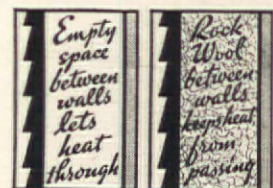 Empty
space
between
walls
lets
heat
through
Rock
Wool
between
walls
keeps heat
from
passing